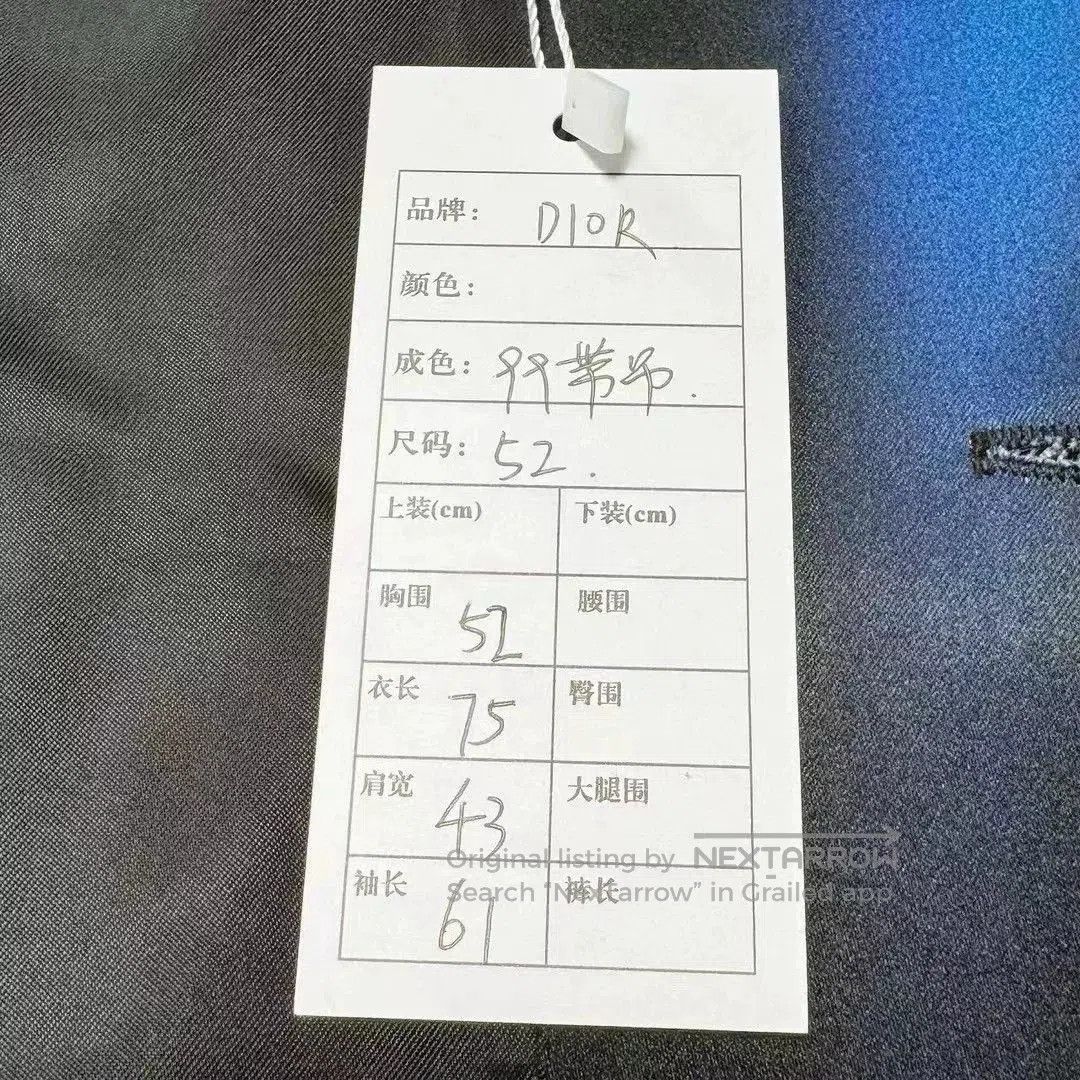 品牌: DIOR
颜色:
成色: 99带吊.
尺码: 52.
上装(cm) 下装(cm)
胸围 52 腰围
衣长 75 臀围
肩宽 43 大腿围
Original listing by NEXTARROW
袖长 61 裤长
Search "Nextarrow" in Grailed app